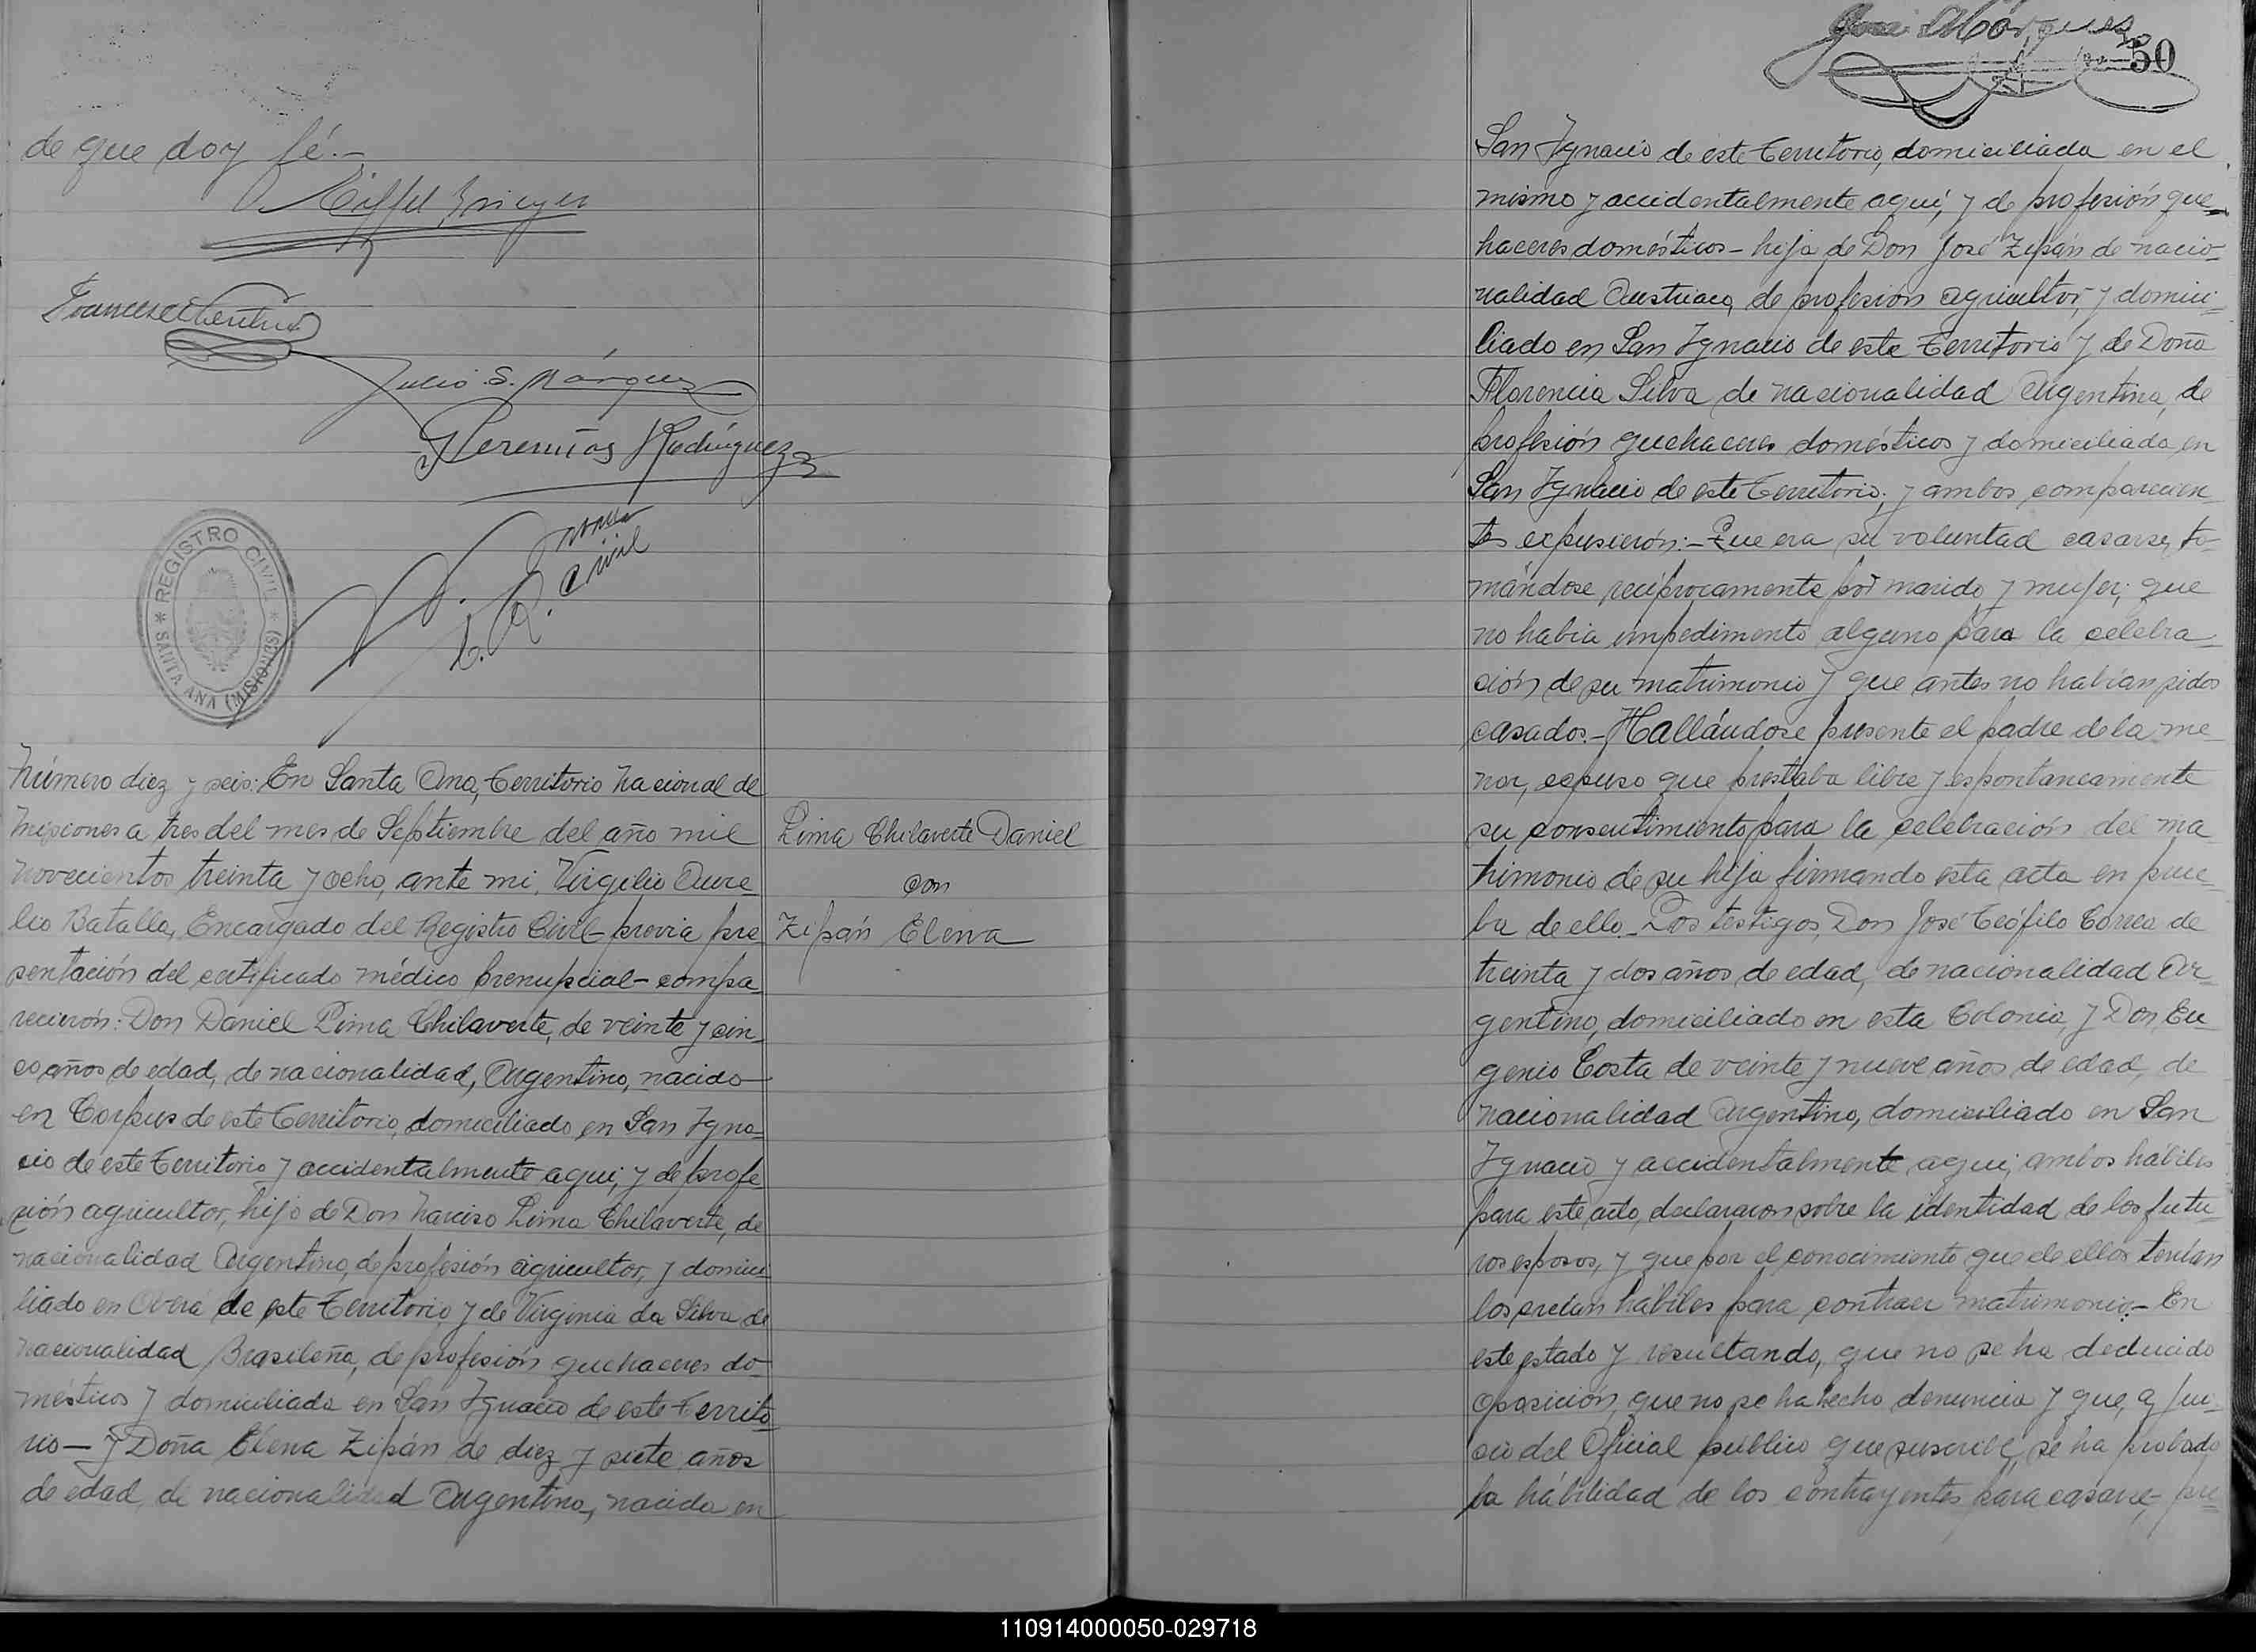 de que doy fé.-
Julio S. Márquez
Geremías Rodríguez
REGISTRO CIVIL
SANTA ANA (MISIONES)
Número diez y seis: En Santa Ana, Territorio Nacional de
Misiones a tres del mes de Septiembre del año mil
novecientos treinta y ocho, ante mi, Virgilio Aure-
lio Batalla, Encargado del Registro Civil- previa pre
sentación del certificado médico prenupcial- compa-
recieron: Don Daniel Lima Chilaverte, de veinte y cin-
co años de edad, de nacionalidad, Argentino, nacido
en Corpus de este Territorio, domiciliado en San Igna-
cio de este Territorio y accidentalmente aqui, y de profe
sión agricultor, hijo de Don Narciso Lima Chilaverte, de
nacionalidad Argentino, de profesión agricultor, y domici-
liado en Oberá de este Territorio y de Virginia da Silva de
nacionalidad Brasileña, de profesión quehaceres do-
mésticos y domiciliada en San Ignacio de este Territo
rio- y Doña Elena Zipán de diez y siete años
de edad, de nacionalidad Argentina, nacida en
Lima Chilaverte Daniel
con
Zipán Elena
50
San Ignacio de este Territorio, domiciliada en el
mismo y accidentalmente aquí, y de profesión que-
haceres domésticos- hija de Don José Zipán de nacio-
nalidad Austriaco, de profesión agricultor, y domici-
liado en San Ignacio de este Territorio y de Doña
Florencia Silva de nacionalidad Argentina, de
profesión quehaceres domésticos y domiciliada en
San Ignacio de este Territorio; y ambos comparecien
tes expusierón:- Que era su voluntad casarse, to-
mándose recíprocamente por marido y mujer; que
no habia impedimento alguno para la celebra-
ción de su matrimonio y que antes no habían sidos
casados.- Hallándose presente el padre de la me
nor, espuso que prestaba libre y espontaneamente
su consentimiento para la celebración del ma
trimonio de su hija firmando esta acta en prue-
ba de ello.- Los testigos, Don José Teófilo Correa de
treinta y dos años de edad, de nacionalidad Ar-
gentino, domiciliado en esta Colonia, y Don Eu
genio Costa de veinte y nueve años de edad, de
nacionalidad Argentino, domiciliado en San
Ignacio y accidentalmente aqui, ambos hábiles
para este acto, declararon sobre la identidad de los futu-
ros esposos, y que por el conocimiento que de ellos tenían
los creían hábiles para contraer matrimonio.- En
este estado y resultando, que no se ha deducido
oposición, que no se ha hecho denuncia y que, a jui-
cio del Oficial público que suscribe, se ha probado
la hábilidad de los contrayentes para casarse, pre-
110914000050-029718